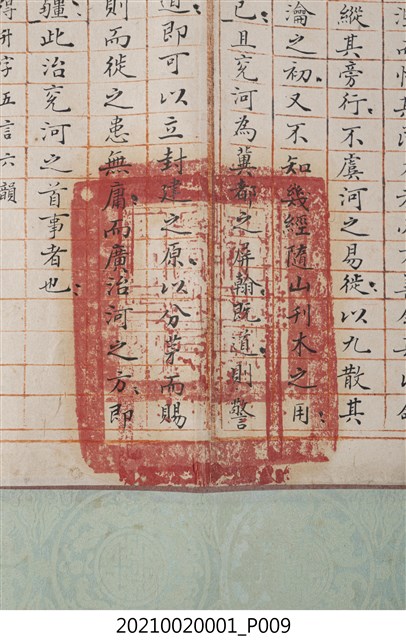 縱其旁行不虞河之易徙以九散其
瀹之初又不知幾經隨山刊木之用
已且兗河為冀都之屏翰既道則警
道即可以立封建之原以分茅而賜
則而徙之患無庸而廣治河之方即
疆此治兗河之首事者也
得升字五言六韻
20210020001_P009